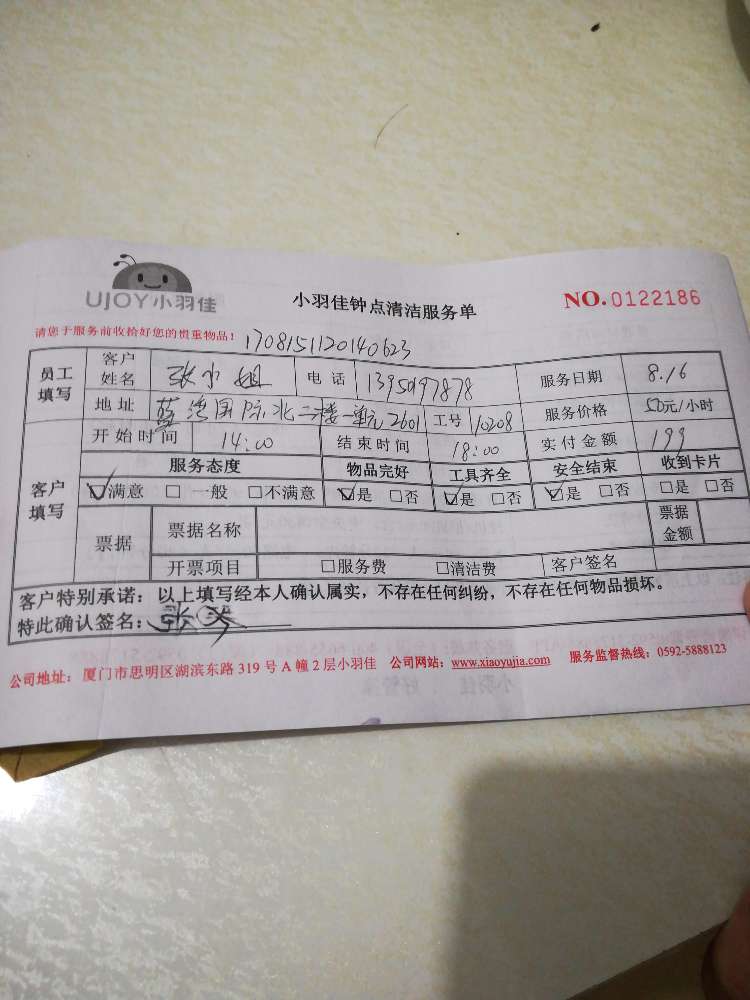 UJOY小羽佳
小羽佳钟点清洁服务单
NO.0122186
请您于服务前收拾好您的贵重物品!
1708151120140623
员工填写 客户姓名 张小姐 电话 服务日期 8.16
地址 蓝湾国际北二楼一单元2601 工号 10208 服务价格 50元/小时
开始时间 14:00 结束时间 18:00 实付金额 199
客户填写 服务态度 物品完好 工具齐全 安全结束 收到卡片
☑满意 □一般 □不满意 ☑是 □否 ☑是 □否 ☑是 □否 □是 □否
票据 票据名称 票据金额
开票项目 □服务费 □清洁费 客户签名
客户特别承诺:以上填写经本人确认属实,不存在任何纠纷,不存在任何物品损坏。
特此确认签名:张
公司地址:厦门市思明区湖滨东路 319 号 A 幢 2 层小羽佳 公司网站:www.xiaoyujia.com 服务监督热线:0592-5888123